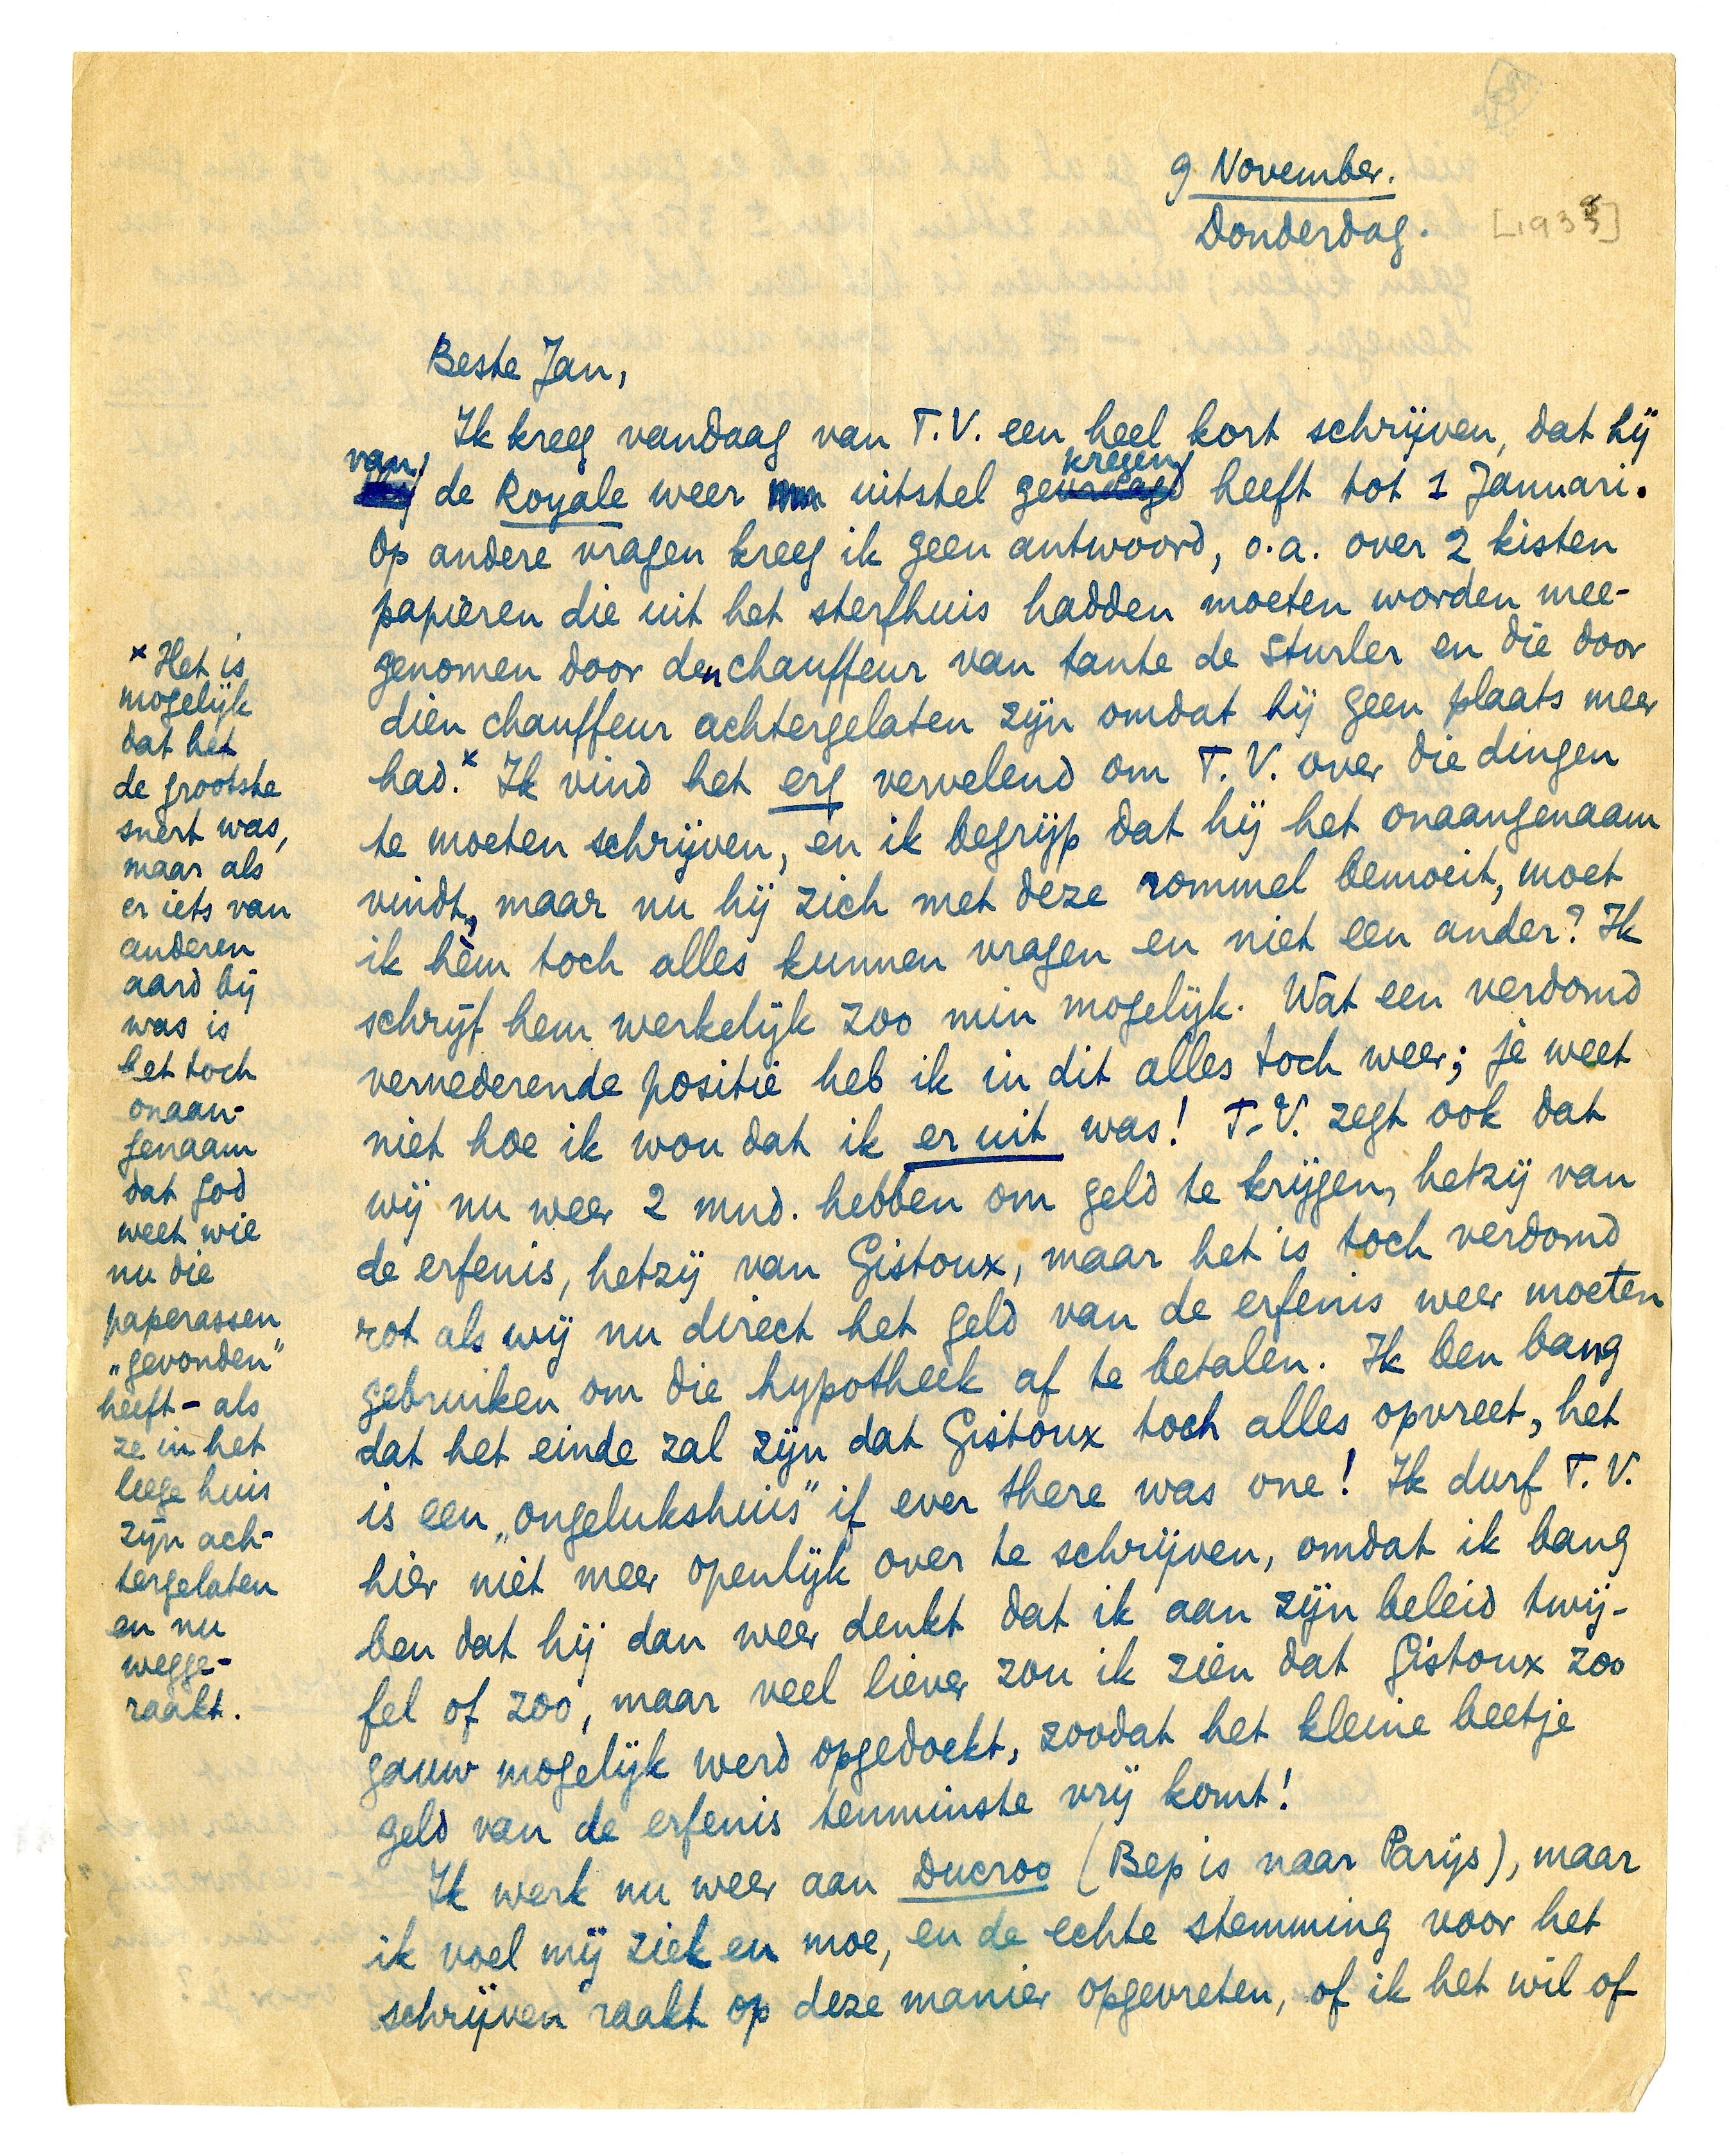 9 November.
Donderdag.
[1933]
Beste Jan,
Ik kreeg vandaag van T.V. een heel kort schrijven, dat hij
van de Royale weer uitstel gekregen heeft tot 1 Januari.
Op andere vragen kreeg ik geen antwoord, o.a. over 2 kisten
papieren die uit het sterfhuis hadden moeten worden mee-
genomen door den chauffeur van tante de Sturler en die door
dien chauffeur achtergelaten zijn omdat hij geen plaats meer
had.x Ik vind het erg vervelend om T.V. over die dingen
te moeten schrijven, en ik begrijp dat hij het onaangenaam
vindt, maar nu hij zich met deze rommel bemoeit, moet
ik hèm toch alles kunnen vragen en niet een ander? Ik
schrijf hem werkelijk zoo min mogelijk. Wat een verdomd
vernederende positie heb ik in dit alles toch weer; je weet
niet hoe ik wou dat ik er uit was! T.V. zegt ook dat
wij nu weer 2 mnd. hebben om geld te krijgen, hetzij van
de erfenis, hetzij van Gistoux, maar het is toch verdomd
rot als wij nu direct het geld van de erfenis weer moeten
gebruiken om die hypotheek af te betalen. Ik ben bang
dat het einde zal zijn dat Gistoux toch alles opvreet, het
is een „ongelukshuis" if ever there was one! Ik durf T.V.
hier niet meer openlijk over te schrijven, omdat ik bang
ben dat hij dan weer denkt dat ik aan zijn beleid twij-
fel of zoo, maar veel liever zou ik zien dat Gistoux zoo
gauw mogelijk werd opgedoekt, zoodat het kleine beetje
geld van de erfenis tenminste vrij komt!
Ik werk nu weer aan Ducroo (Bep is naar Parijs), maar
ik voel mij ziek en moe, en de echte stemming voor het
schrijven raakt op deze manier opgevreten, of ik het wil of
x Het is
mogelijk
dat het
de grootste
snert was,
maar als
er iets van
anderen
aard bij
was is
het toch
onaan-
genaam
dat god
weet wie
nu die
paperassen
„gevonden"
heeft – als
ze in het
leege huis
zijn ach-
tergelaten
en nu
wegge-
raakt.